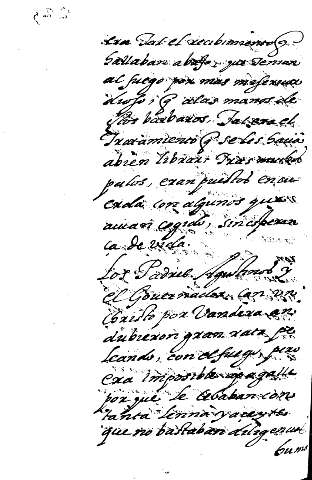 era tal el recibimiento q
hallaban abajo, que temian
al fuego por mas misericor
dioso, q a las manos de
los barbaros. Tal era el
tratamiento q se les havia
abien librar, tras
pulos, eran puestos en cu
erda con algunos que
avian cogido, sin esperan
ca de vida.
Los Padres Agustinos y
el Governador, con un
Christo por Vandera an
dubieron gran rata pe
leando, con el fuego, pero
era imposible apagalle
por que le cebaban con
tanta lenna y aceyte
que no bastaban diligencias